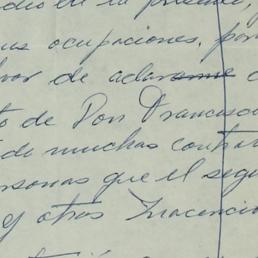 dio de la presente,
us ocupaciones, por
vor de aclarame
to de Don Francisco
de muchas contra
ersonas que el segu
y otros Inocencio